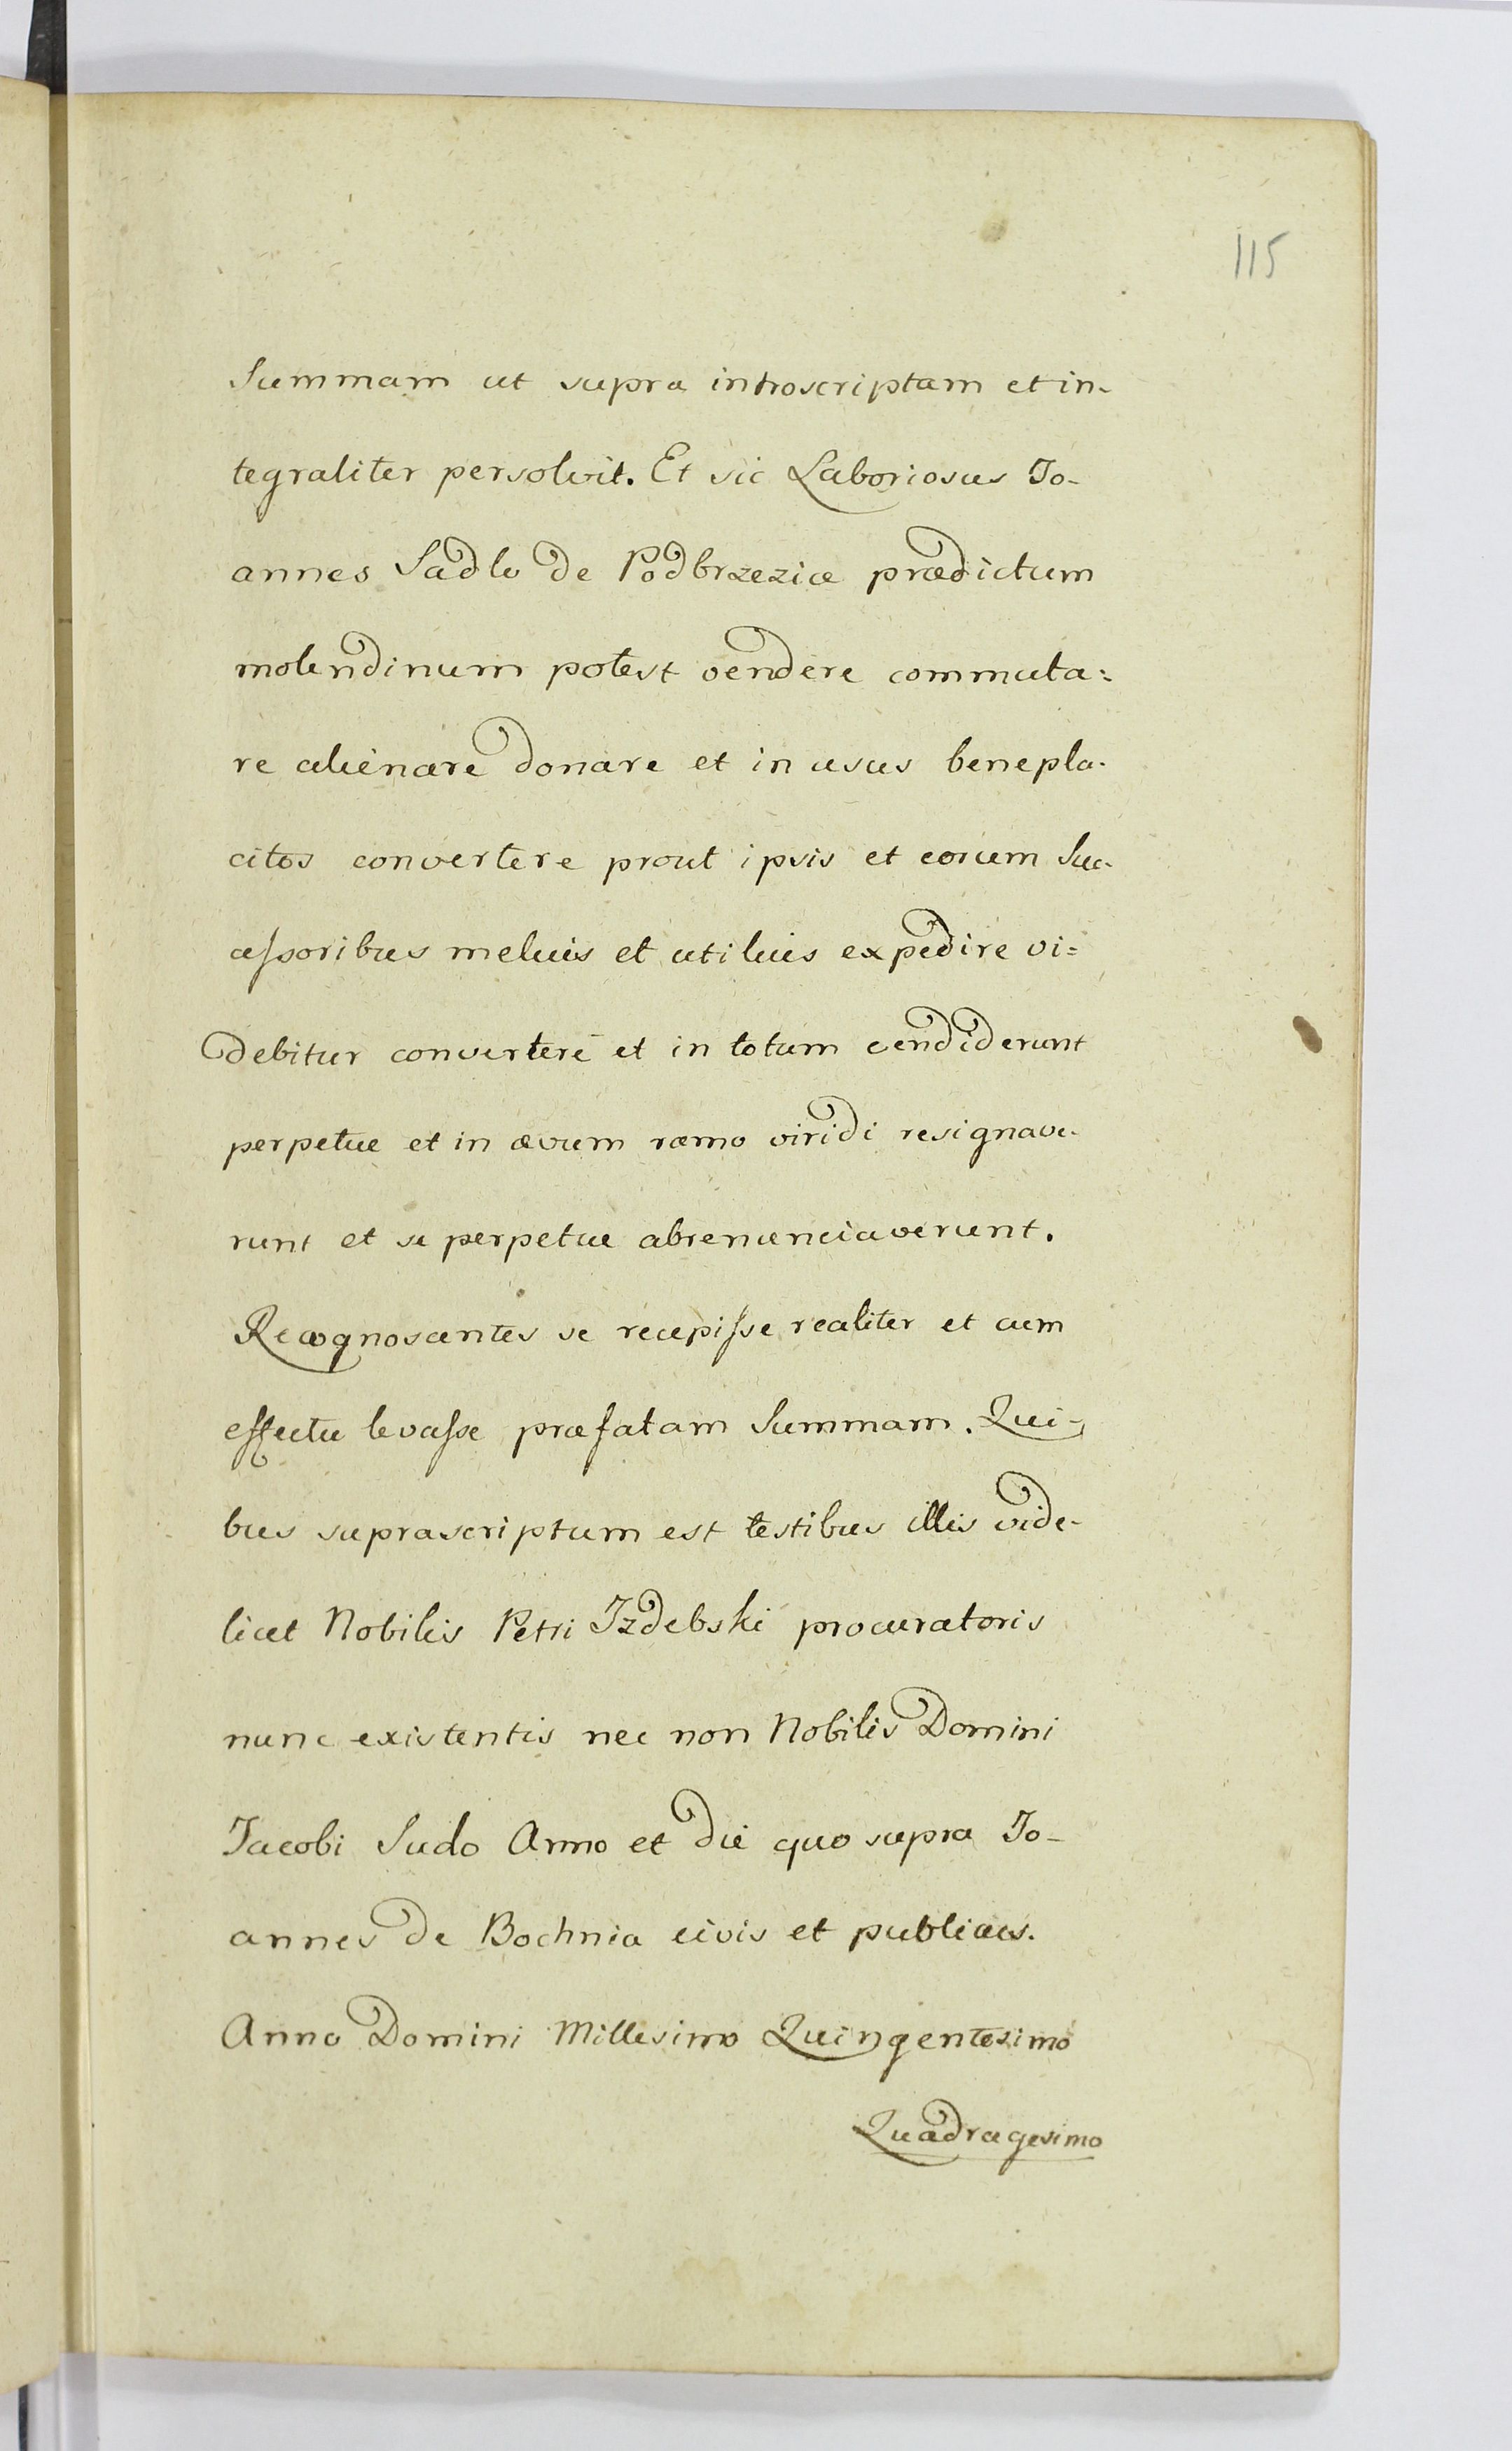 115
Summam ut supra introscriptam et in-
tegraliter persolvit. Et sic Laboriosus Jo-
annes Sadlo de Podbrzezice prædictum
molendinum potest vendere commuta=
re alienare donare et in usus benepla-
citos convertere prout ipsis et eorum Suc-
cessoribus melius et utilius expedire vi=
debitur convertere et in totum vendiderunt
perpetue et in ævum ramo viridi resignave-
runt et se perpetue abrenunciaverunt.
Recognoscentes se recepisse realiter et cum
effectu levasse præfatam Summam. Qui-
bus suprascriptum est testibus illis vide-
licet Nobilis Petri Izdebski procuratoris
nunc existentis nec non Nobilis Domini
Jacobi Sudo Anno et die quo supra Jo-
annes de Bochnia civis et publicus.
Anno Domini Millesimo Quingentesimo
Quadragesimo